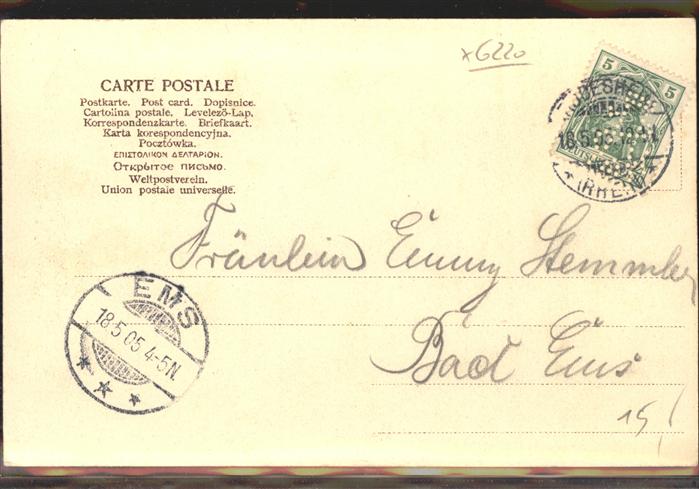 x6220
CARTE POSTALE
Postkarte. Post card. Dopisnice.
Cartolina postale. Levelező-Lap.
Korrespondenzkarte. Briefkaart.
Karta korespondencyjna.
Pocztówka.
ΕΠΙΣΤΟΛΙΚΟΝ ΔΕΛΤΑΡΙΟΝ.
Открытое письмо.
Weltpostverein.
Union postale universelle.
5 5
Fräulein Emmy Stemmler
EMS
18.5.05 4-5N.
Bad Ems
15